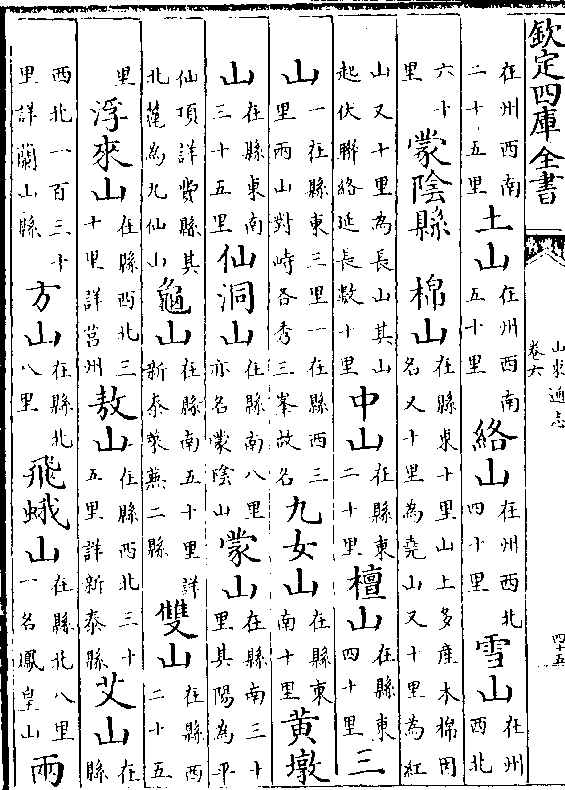 欽定四庫全書 山東通志 卷六 四十五
在州西南二十五里 土山在州西南五十里 絡山在州西北四十里 雪山在州西北
六十里 蒙陰縣 棉山在縣東十里山上多産木棉因名又十里為堯山又十里為紅
山又十里為長山其山起伏聯絡延長數十里 中山在縣東二十里 檀山在縣東四十里 三
山一在縣東三里一在縣西三里兩山對峙各秀三峯故名 九女山在縣東南十里 黄墩
山在縣東南三十五里 仙洞山在縣南八里亦名蒙陰山 蒙山在縣南三十里其陽為平
仙頂詳費縣其北麓為九仙山 龜山在縣南五十里詳新泰萊蕪二縣 雙山在縣西二十五
里 浮來山在縣西北三十里詳莒州 敖山在縣西北三十五里詳新泰縣 艾山在縣
西北一百三十里詳蘭山縣 方山在縣北八里 飛蛾山在縣北八里一名鳳皇山 兩